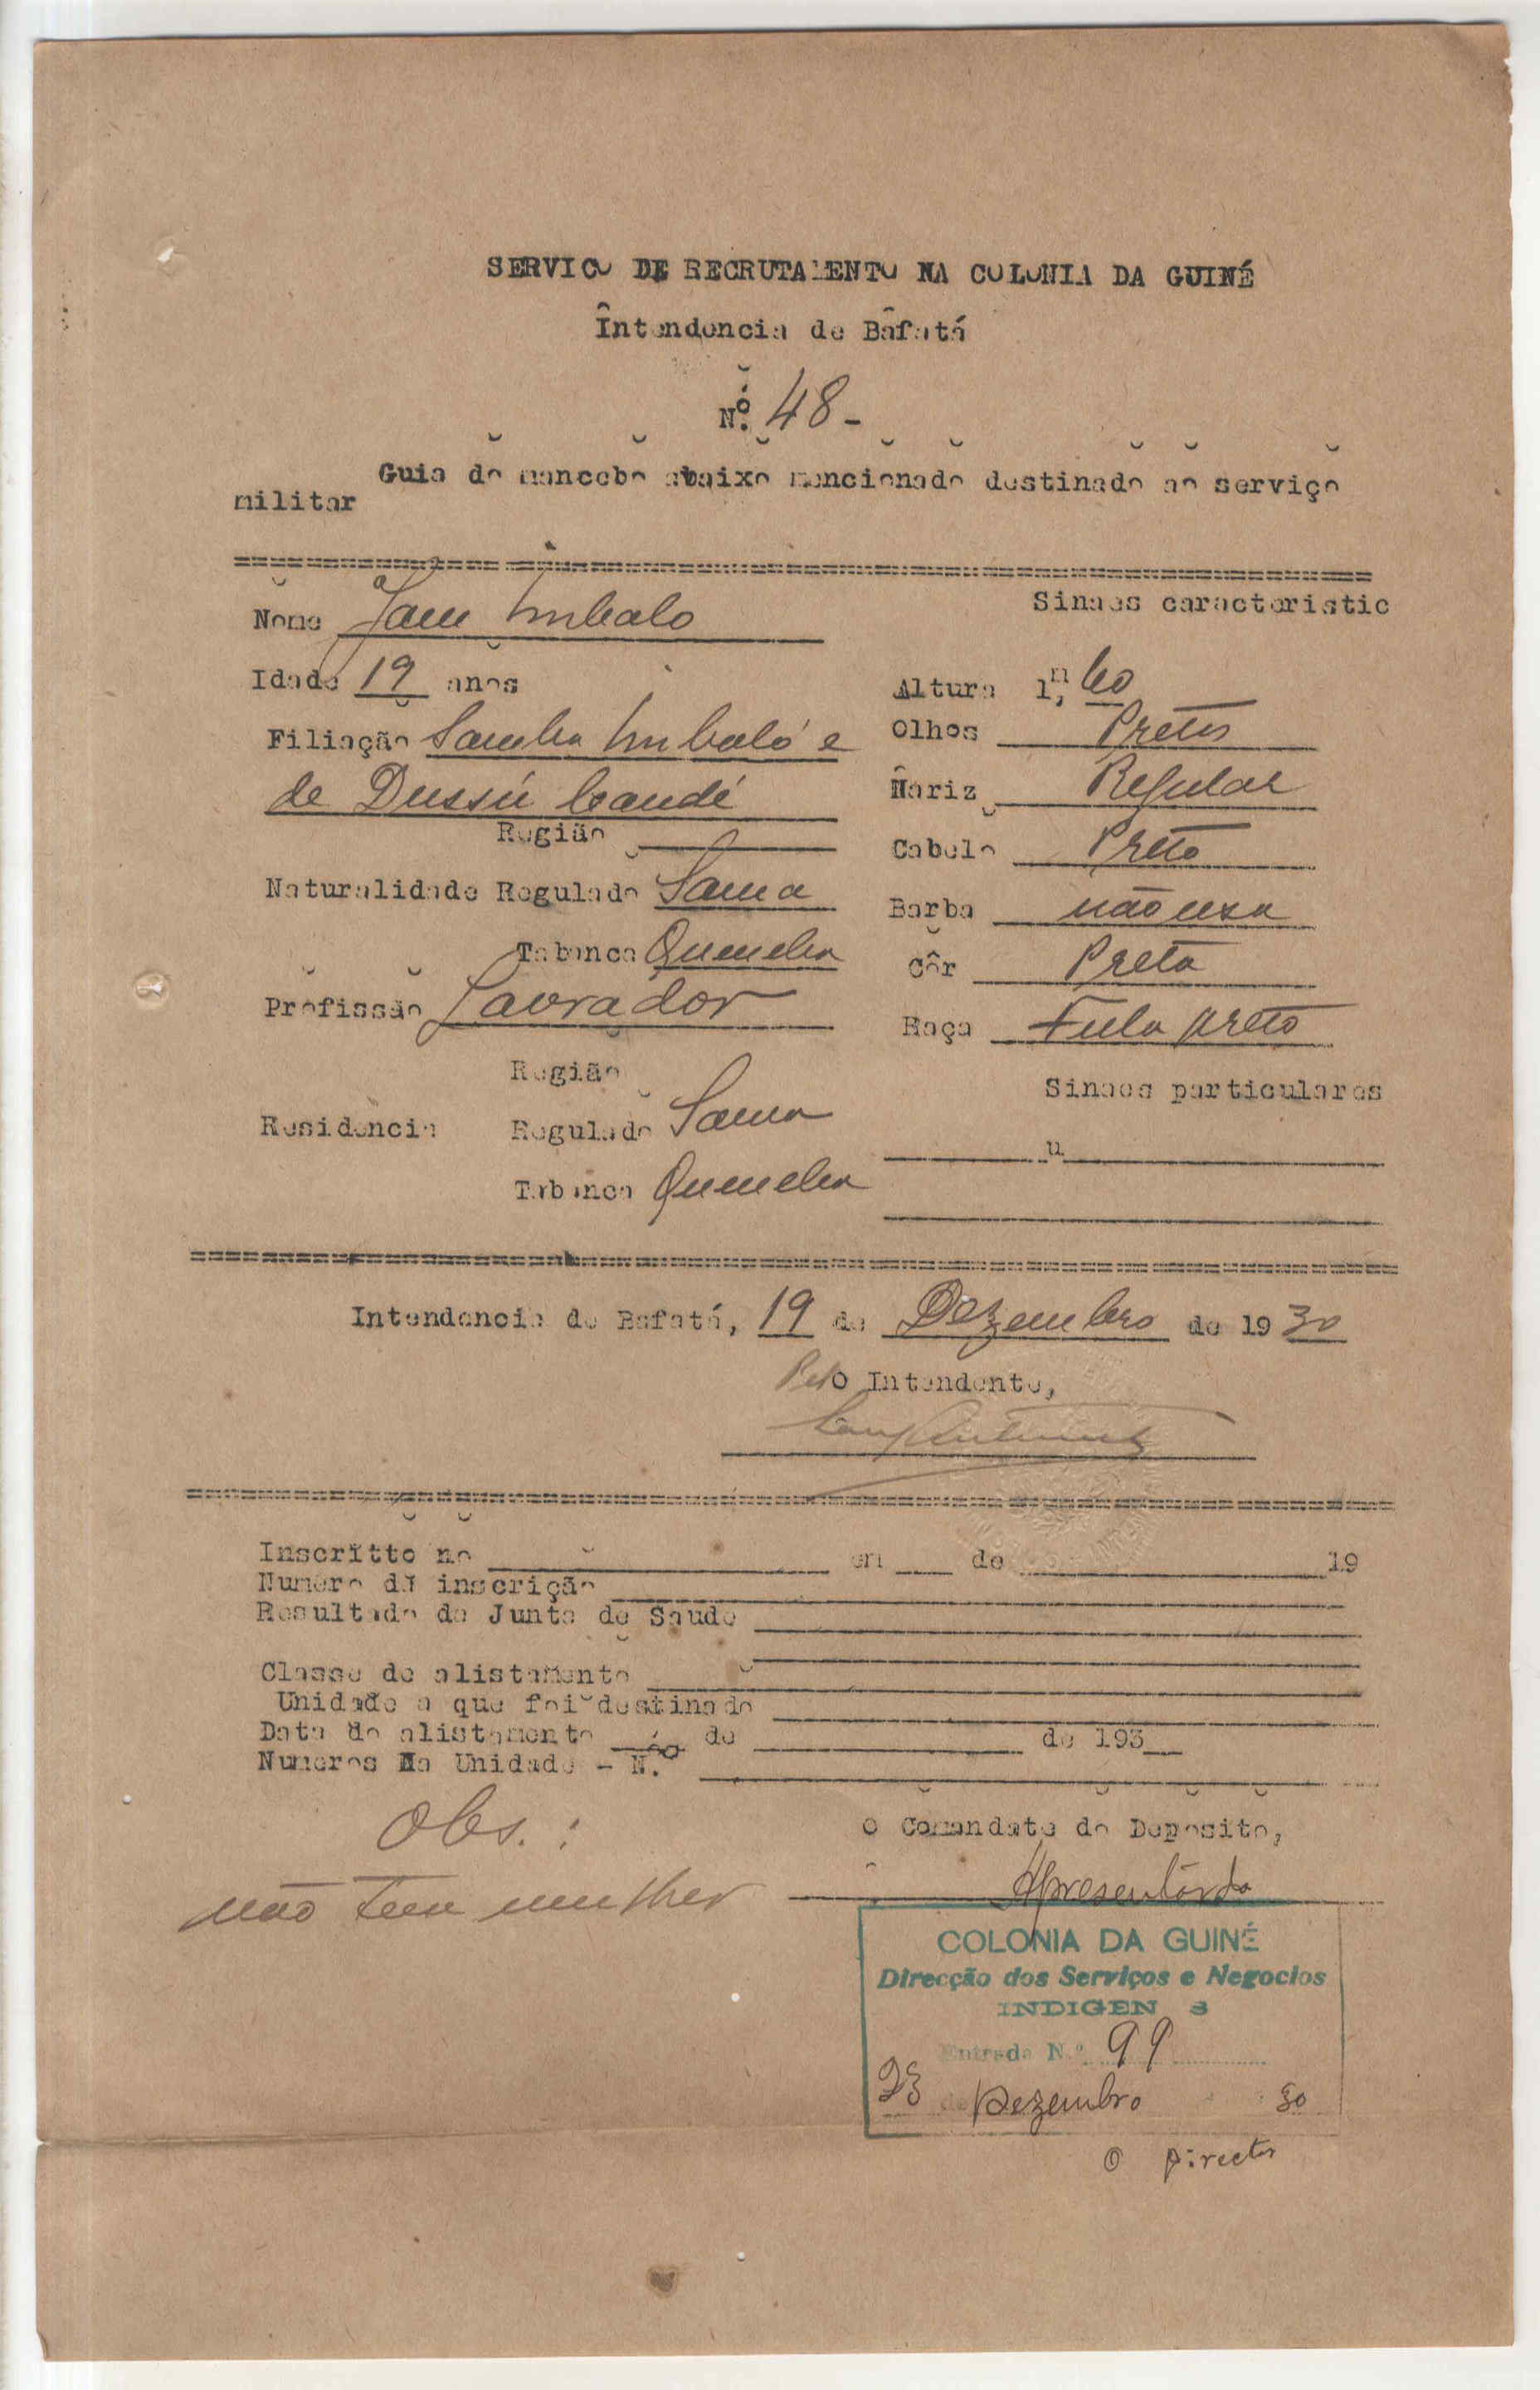 SERVICO DE RECRUTAMENTO NA COLONIA DA GUINÉ
Intendencia de Bafatá
Nº. 48-
Guia do mancebo abaixo mencionado destinado ao serviço
militar
Nome Jam Imbalo
Sinaes caracteristic
Idade 19 anos
Altura 1,m 60
Filiação Samba Imbaló e
Olhos Pretos
de Dussú Candé
Nariz Regular
Região
Cabelo Preto
Naturalidade Regulado Sama
Barba não usa
Tabanca Quemeba
Côr Preta
Profissão Lavrador
Raça Fula preto
Região
Sinaes particulares
Residencia Regulado Sama
Tabanca Quemeba
Intendencia de Bafatá, 19 de Dezembro de 1930
Pelo Intendente,
Inscritto no em de 19
Numero da inscrição
Resultado da Junta de Saude
Classe de alistamento
Unidade a que foi destinado
Data do alistamento de de 193
Numeros Na Unidade - N.º
Obs. :
O Comandate do Deposito,
não tem mulher
Apresentôrdo
COLONIA DA GUINÉ
Direcção dos Serviços e Negocios
INDIGEN S
Entrada N.º 99
23 de Dezembro 30
O Director